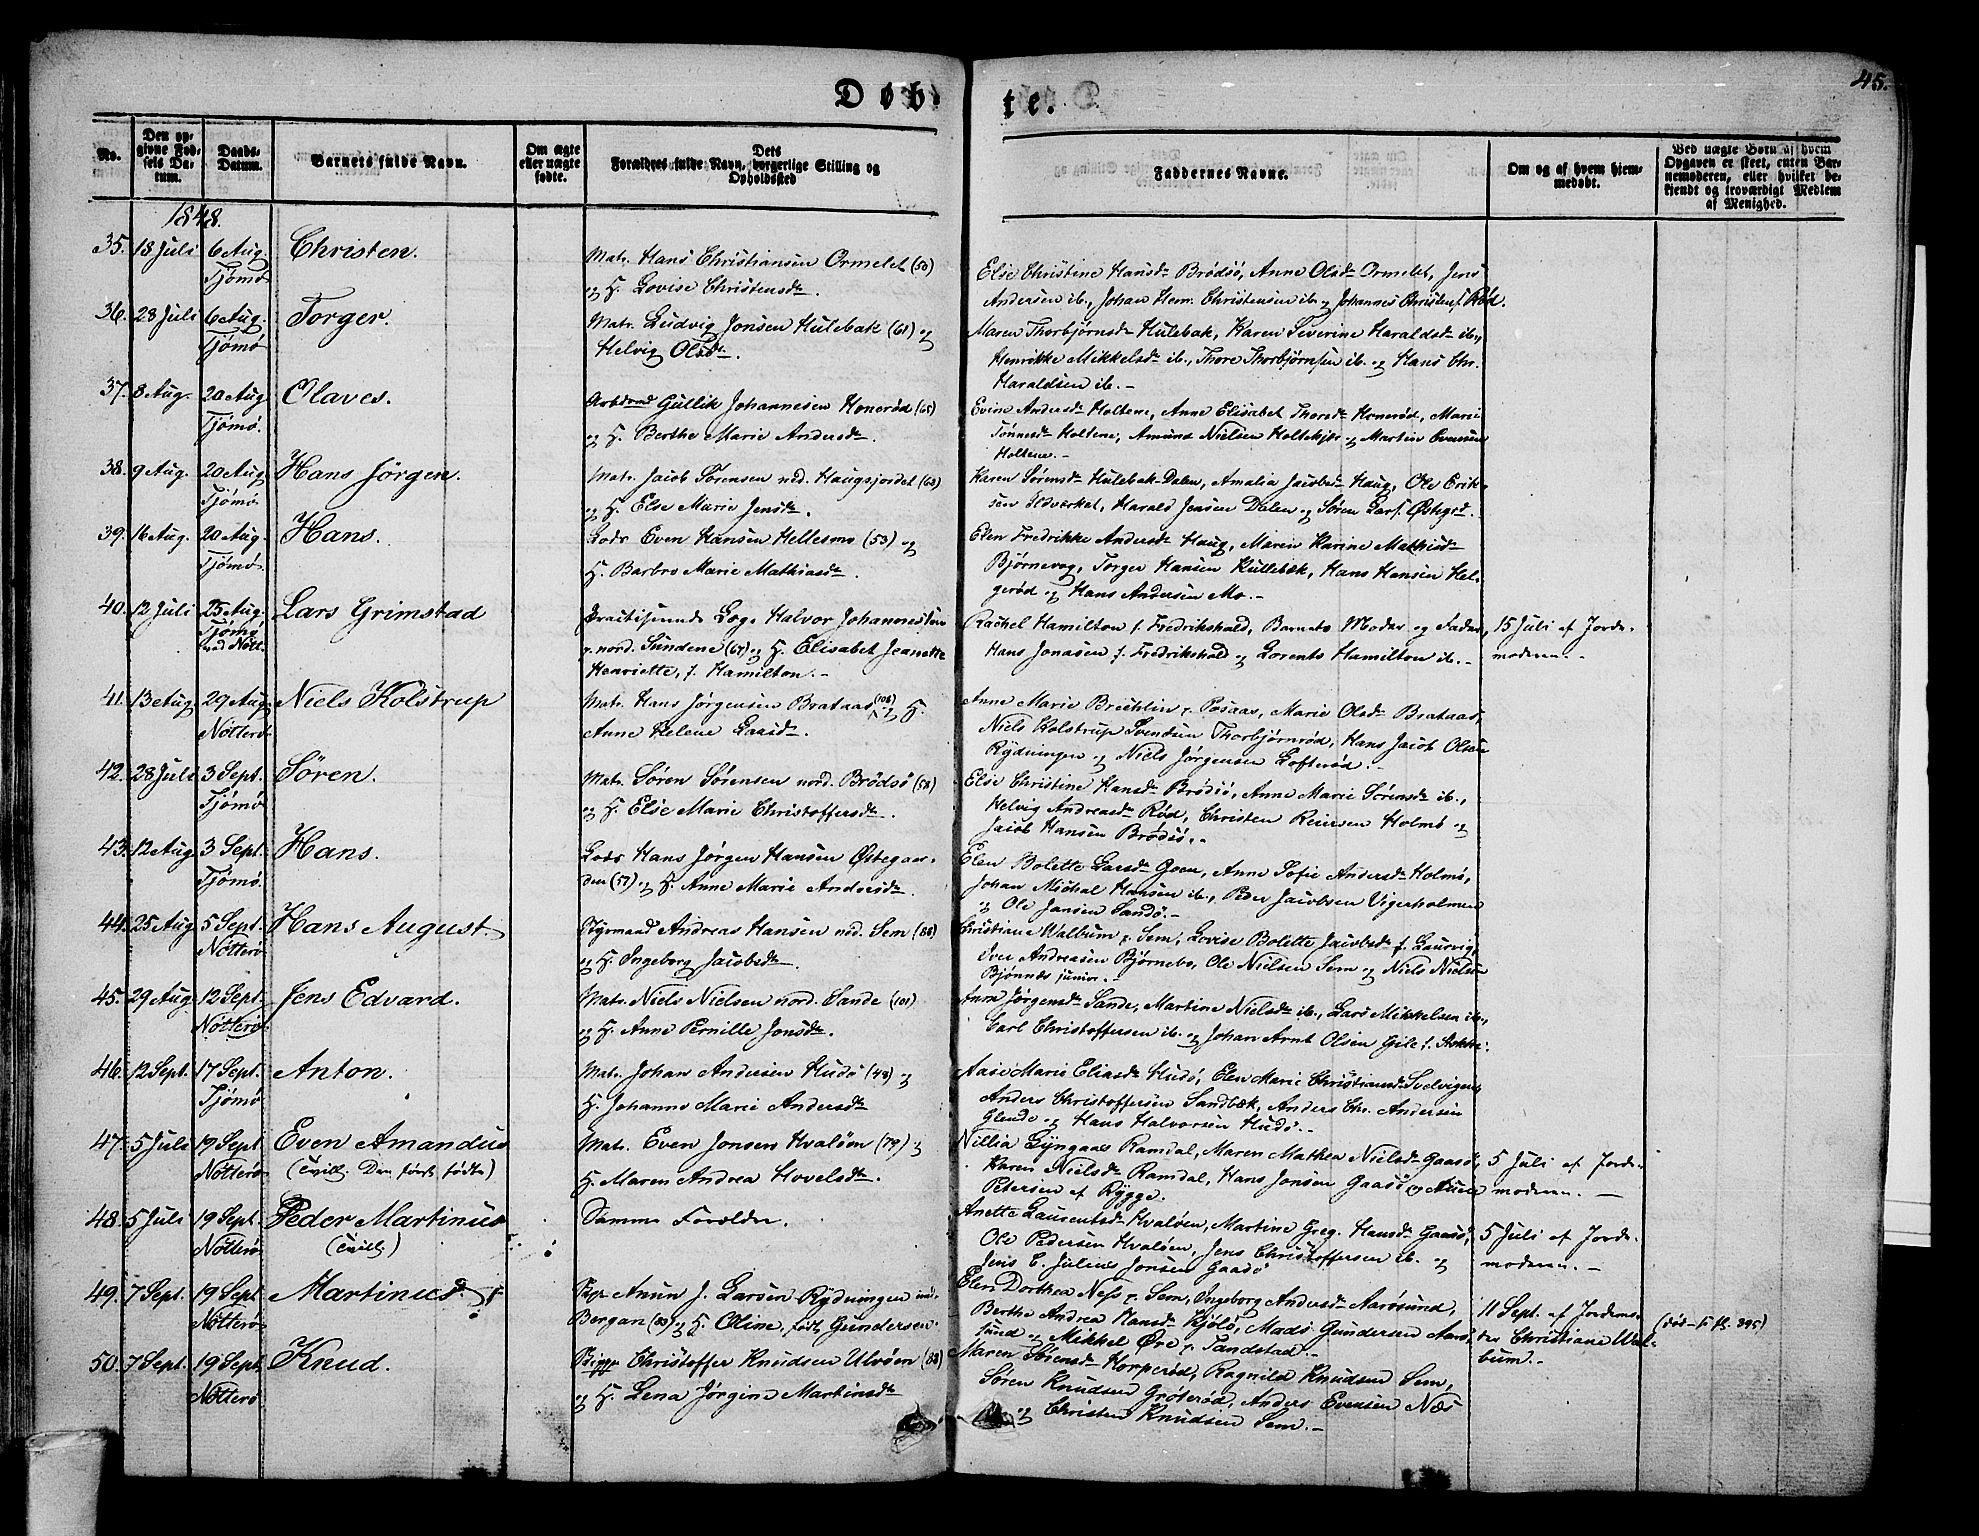 45.
Døbte.
No.
Den opgivne Fødsels Datum.
Daabs-Datum.
Barnets fulde Navn.
Om ægte eller uægte fødte.
Dets Forældres fulde Navn, borgerlige Stilling og Opholdssted
Faddernes Navne.
Om og af hvem hjemmedøbt.
Ved uægte Børn af hvem Opgaven er skeet, enten Barnemoderen, eller hvilket bekjendt og troværdigt Medlem af Menighed.
1848.
35. 18 Juli 6 Aug. Tjømø Christen.
Matr. Hans Christiansen Ormelet (50)
og H. Lovise Christensdtr.
Else Christine Hansdtr Brødsø, Anne Olsdtr Ormelet, Jens
Andersen ib., Johan Hem. Christensen ib. og Johannes Christens. Rød.
36. 28 Juli 6 Aug. Tjømø Torger.
Matr. Ludvig Jonsen Hulebak (61) og
Helvig Olsdtr.
Maren Thorbjørnsdtr Hulebak, Karen Severine Haraldsdtr ib.,
Henrikke Mikkelsdtr ib., Thore Thorbjørnsen ib. og Hans Chr.
Haraldsen ib.-
37. 8 Aug. 20 Aug Tjømø. Olaves.
Arbdmd Gullik Johannesen Honerød (65)
og H. Berthe Marie Andersdtr.
Evine Andersdtr Holtene, Anne Elisabet Thorsdtr Honerød, Marie
Tønnesdtr Holtene, Amund Nielsen Holtekjær og Martin Evensen
Holtene.-
38. 9 Aug. 20 Aug Tjømø Hans Jörgen.
Matr. Jacob Sørensen ned. Haugsjordet (63)
og H. Else Marie Jensdtr.
Karen Sørensdtr Hulebak-Dalen, Amalia Jacobsdtr Haug, Ole Erik-
sen Ildverket, Harald Jensen Dalen og Søren Lars. Østegrd.
39. 16 Aug. 20 Aug. Tjømø Hans.
Lods Even Hansen Hellesmo (53) og
H. Barbro Marie Mathiasdtr.
Elen Fredrikke Andersdtr Haug, Maren Karine Mathiasdtr
Bjørnevog, Torger Hansen Kullebæk, Hans Hansen Hel-
gerød og Hans Andersen Mo.-
40. 12 Juli 25 Aug, Tjømø Lars Grimstad
Practiserende Læge Halvor Johannessen
p. nord. Sundene (67) og H. Elisabet Jeanette
Henriette, f. Hamilton.-
Rachel Hamilton f. Fredrikshald, Barnets Moder og Fader,
Hans Jonasen f. Fredrikshald og Lorents Hamilton ib.-
15 Juli af Jorde-
moderen.-
41. 13 Aug 29 Aug Nötterö Niels Kolstrup
Matr. Hans Jörgensen Brataas (108) og H.
Anne Helene Laasdtr.
Anne Marie Brechlin p. Rosaas, Marie Olsdtr Brataas,
Niels Kolstrup Svendsen Thorbjørnrød, Hans Jacob Olsen
Rydningen og Niels Jørgensen Lofterød.-
42. 28 Juli 3 Sept. Tjømø Sören.
Matr. Søren Sørensen nord. Brødsø (58)
og H. Else Marie Christoffersdtr.
Else Christine Hansdtr Brødsø, Anne Marie Sørensdtr ib.,
Helvig Andreasdtr Rød, Christen Reiersen Holmø og
Jacob Hansen Brødsø.-
43. 12 Aug 3 Sept. Tjømø. Hans.
Lods Hans Jørgen Hansen Østegaar-
den (57) og H. Anne Marie Andersdtr.
Elen Bolette Larsdtr Goen, Anne Sofie Andersdtr Holmø,
Johan Michal Hansen ib., Peder Jacobsen Vigerholmen
og Ole Jansen Sandø.-
44. 25 Aug 5 Sept. Nötterö Hans August.
Styrmand Andreas Hansen ned. Sem (88)
og H. Ingeborg Jacobsdtr.
Christiane Walbum p. Sem, Lovise Bolette Jacobsdtr f. Laurvig,
Iver Andreasen Bjørnebo, Ole Nielsen Sem og Niels Nielsen
Bjønnes junior.-
45. 29 Aug. 12 Sept. Nötterö Jens Edvard.
Matr. Niels Nielsen nord. Sande (101)
og H. Anne Pernille Jonsdtr.
Anne Jørgensdtr Sande, Martine Nielsdtr ib., Lars Mikkelsen ib.,
Carl Christoffersen ib. og Johan Arnt Olsen Gile f. Stokke.
46. 12 Sept. 17 Sept. Tjømø Anton.
Matr. Johan Andersen Hudø (48) og
H. Johanne Marie Andersdtr
Aase Marie Eliasdtr Hudø, Elen Marie Christiansdtr Svelvigen,
Anders Christoffersen Sandbæk, Anders Chr. Andersen
Glende og Hans Halvorsen Hudø.-
47. 5 Juli 19 Sept Nötterö Even Amandus
(Tvill. Den først fødte)
Matr. Even Jonsen Hvaløen (79) og
H. Maren Andrea Hovelsdtr.
Nillia Gyngaas Ramdal, Maren Mathea Nielsdtr Gaasø,
Karen Nielsdtr Ramdal, Hans Jonsen Gaasø og
Petersen af Rygge.
5 Juli af Jorde-
moderen.-
48. 5 Juli 19 Sept. Nötterö Peder Martinus
(Tvill.)
Samme Forældre.
Anette Laurentsdtr Hvaløen, Martine Greg. Hansdtr Gaasø,
Ole Pedersen Hvaløen, Jens Christoffersen ib. og
Jens E. Julius Jonsen Gaasø
5 Juli af Jorde-
moderen.-
49. 7 Sept. 19 Sept. Nötterö Martinus
Bgp. Amun J. Larsen Rydningen und.
Bergan (83) og H. Oline, født Gundersen.
Elen Dorthea Næss p. Sem, Ingeborg Andersdtr Aarøsund,
Berthe Andrea Hansdtr Kjölö, Mads Gundersen Aarø-
sund og Mikkel Øre p. Sandstad.-
11 Sept. af Jordemo-
der Christiane Wal-
bum.-
50. 7 Sept. 19 Sept. Nötterö Knud.
Bgp. Christoffer Knudsen Ulvøen (88)
og H. Lena Jørgine Martinsdtr
Maren Ibsensdtr Horperød, Ragnild Knudsen Sem,
Søren Knudsen Grøterød, Anders Evensen Næs
og Christen Knudsen Sem.-